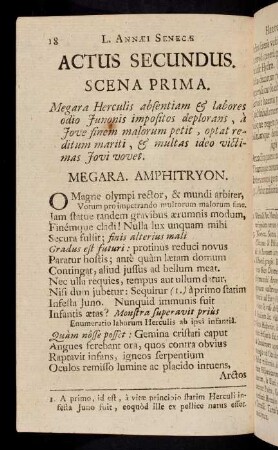 18 L. ANNÆI SENECÆ
ACTUS SECUNDUS.
SCENA PRIMA.
Megara Herculis absentiam & labores
odio Junonis impositos deplorans, à
Jove finem malorum petit, optat re-
ditum mariti, & multas ideo victi-
mas Jovi vovet.
MEGARA. AMPHITRYON.
O Magne olympi rector, & mundi arbiter,
Votum pro impetrando multorum malorum fine.
Jam statue tandem gravibus ærumnis modum,
Finémque cladi! Nulla lux unquam mihi
Secura fulsit; finis alterius mali
Gradus est futuri: protinus reduci novus
Paratur hostis; antè quàm lætam domum
Contingat, aliud jussus ad bellum meat.
Nec ulla requies, tempus aut ullum datur,
Nisi dum jubetur: Sequitur (1.) à primo statim
Infesta Juno. Nunquid immunis fuit
Infantis ætas? Monstra superavit priùs
Enumeratio laborum Herculis ab ipsâ infantiâ.
Quàm nôsse posset: Gemina cristati caput
Angues ferebant ora, quos contra obvius
Reptavit infans, igneos serpentium
Oculos remisso lumine ac placido intuens,
Arctos
1. A primo, id est, à vitæ principio statim Herculi in-
festa Juno fuit, eoquòd ille ex pellice natus esset.